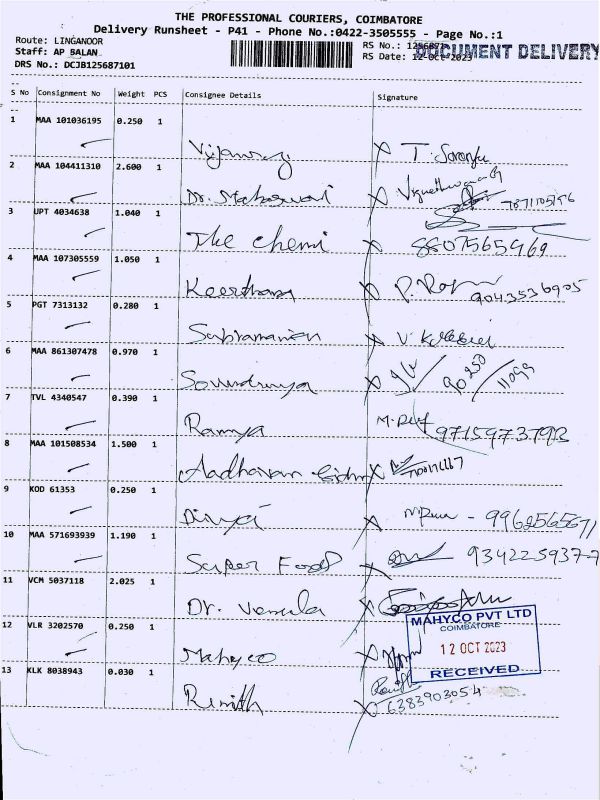 THE PROFESSIONAL COURIERS, COIMBATORE
Delivery Runsheet - P41 - Phone No.:0422-3505555 - Page No.:1
Route: LINGANOOR
Staff: AP BALAN
DRS No.: DCJB125687101
RS No.: 1256871
RS Date: 12-Oct-2023
DOCUMENT DELIVERY
S No Consignment No Weight PCS Consignee Details Signature
1 MAA 101036195 0.250 1
Vijayaraj T. Saranya
2 MAA 104411310 2.600 1
Dr. Maheswari 7871105196
3 UPT 4034638 1.040 1
The Chemi 8807565969
4 MAA 107305559 1.050 1
Keerthana 9043536905
5 PGT 7313132 0.280 1
Subramanian
6 MAA 861307478 0.970 1
Soundrya 90250 11099
7 TVL 4340547 0.390 1
Ramya 9715973792
8 MAA 101508534 1.500 1
Aadhavan
9 KOD 61353 0.250 1
Divya 9962565671
10 MAA 571693939 1.190 1
Super Food 934225937
11 VCM 5037118 2.025 1
Dr. Vemula
MAHYCO PVT LTD
COIMBATORE
12 VLR 3202570 0.250 1
Mahyco
12 OCT 2023
RECEIVED
13 KLK 8038943 0.030 1
Rinith 6383903054